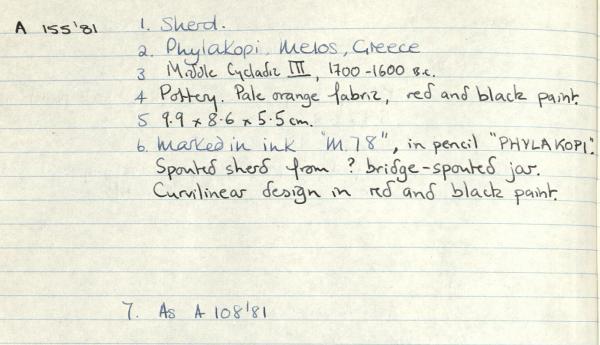 A 155'81 1. Sherd.
2. Phylakopi, Melos, Greece
3 Middle Cycladic III, 1700-1600 B.C.
4 Pottery. Pale orange fabric, red and black paint.
5 9.9 x 8.6 x 5.5 cm.
6. Marked in ink "M.78", in pencil "PHYLAKOPI".
Spouted sherd from ? bridge-spouted jar.
Curvilinear design in red and black paint.
7. As A 108'81